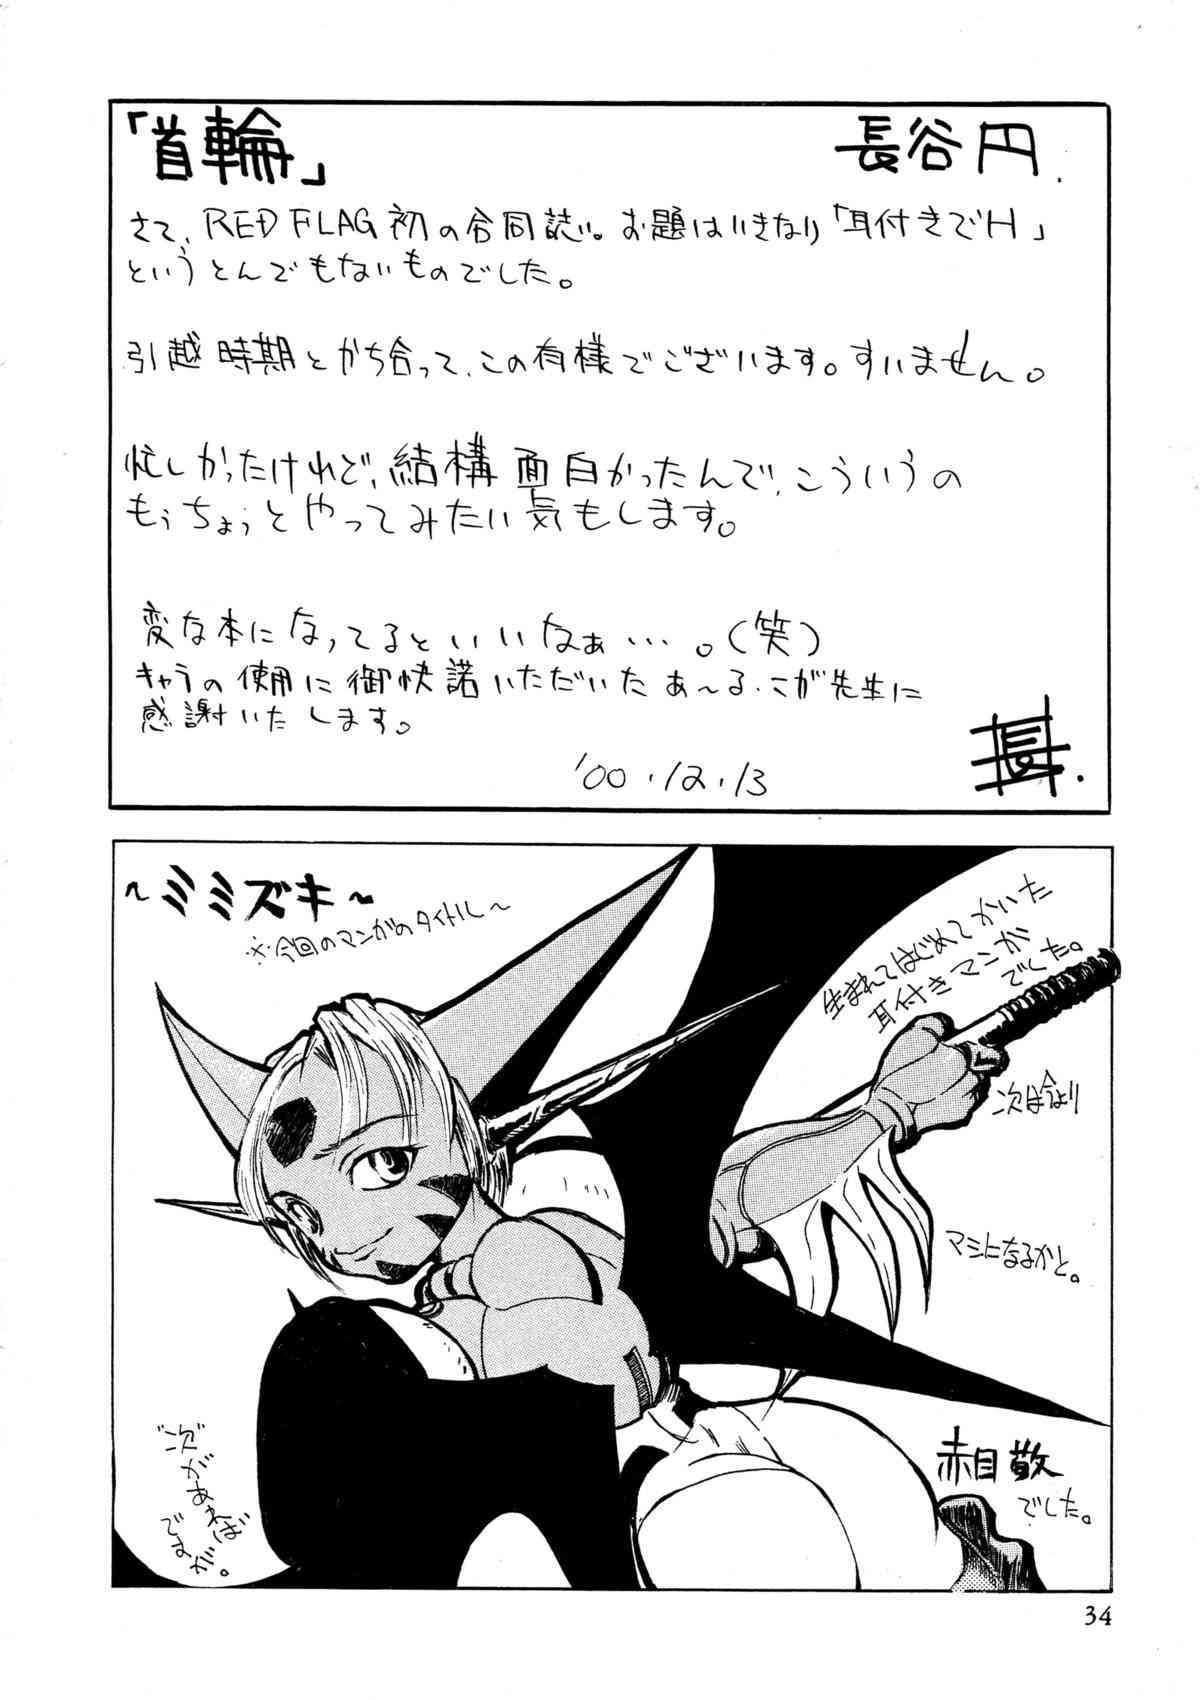 「首輪」 長谷円.
さて、RED FLAG初の合同誌。お題はいきなり「耳付きでH」
というとんでもないものでした。
引越時期とかち合って、この有様でございます。すいません。
忙しかったけれど、結構面白かったんで、こういうの
もうちょっとやってみたい気もします。
変な本になってるといいなぁ…。(笑)
キャラの使用に御快諾いただいたあ〜る・こが先生に
感謝いたします。
'00.12.13
長
~ミミズキ~
※今回のマンガのタイトル~
生まれてはじめてかいた
耳付きマンガ
でした。
次は今より
マシになるかと。
"次"があれば
ですが。
赤目敬
でした。
34